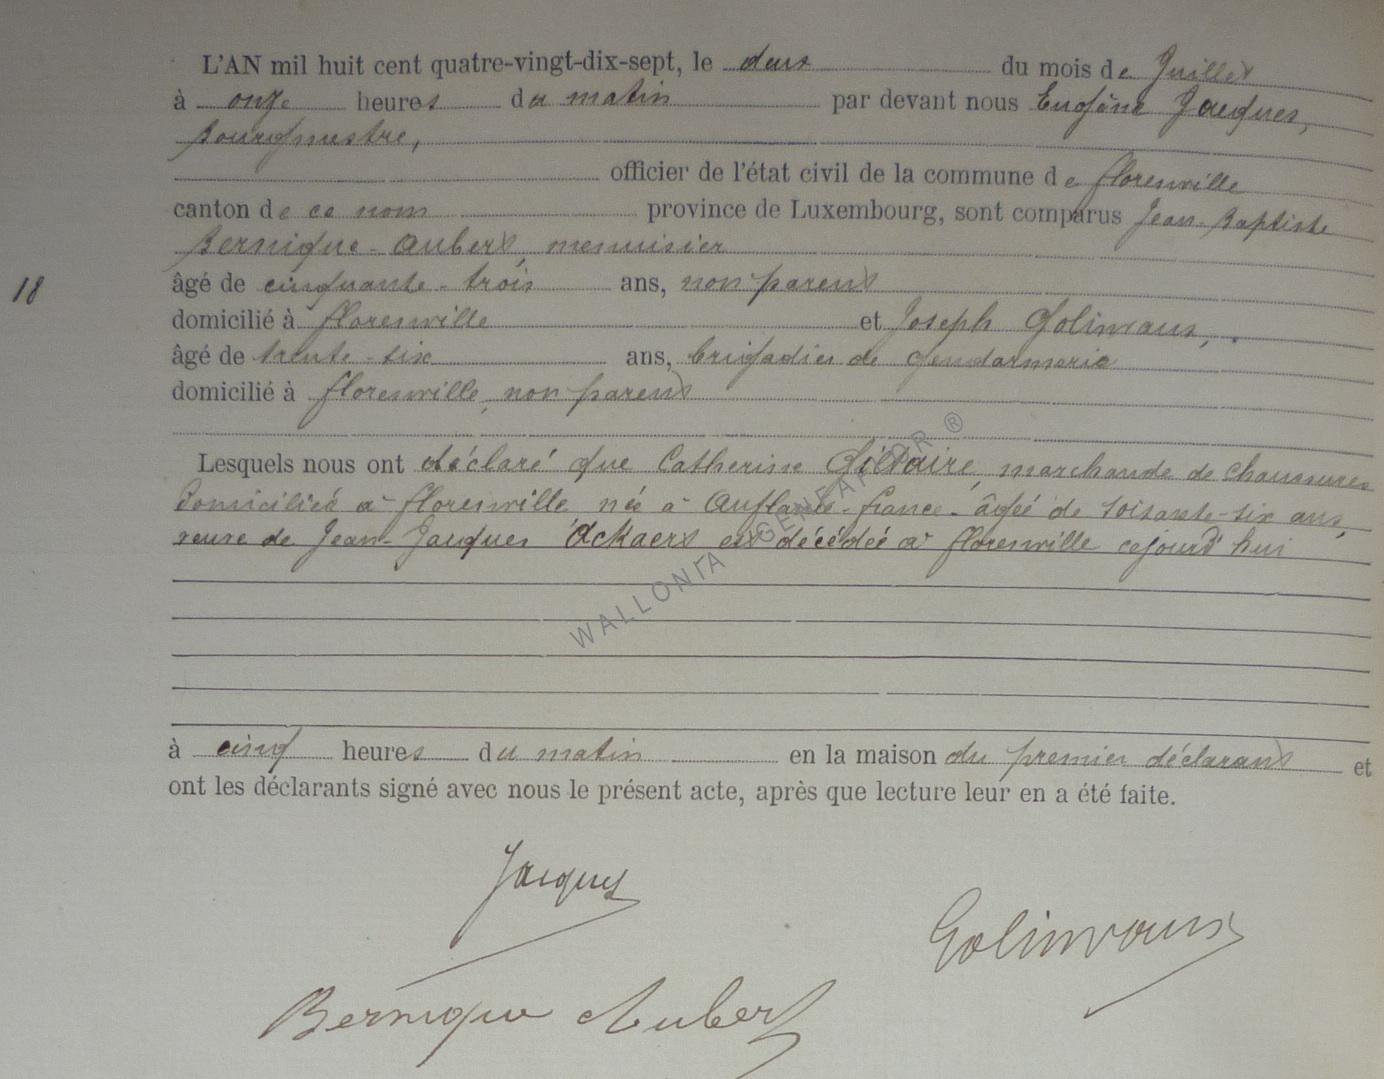 L'AN mil huit cent quatre-vingt-dix-sept, le deux du mois de Juillet
à onze heures du matin par devant nous Eugène Jacques,
Bourgmestre,
officier de l'état civil de la commune de florenville
canton de ce nom province de Luxembourg, sont comparus Jean-Baptiste
Bernique-Aubert, menuisier
18
âgé de cinquante-trois ans, non parent
domicilié à florenville et Joseph Golinvaux,
âgé de trente-six ans, brigadier de gendarmerie
domicilié à florenville, non parent
Lesquels nous ont déclaré que Catherine marchande de chaussures
domiciliée à florenville, née à france-âgée de soixante-six ans,
veuve de Jean-Jacques Ackaert est décédée à florenville cejourd'hui
WALLONIA GENEAFOR ®
à cinq heures du matin en la maison du premier déclarant et
ont les déclarants signé avec nous le présent acte, après que lecture leur en a été faite.
Jacques
Golinvaux
Bernique Aubert